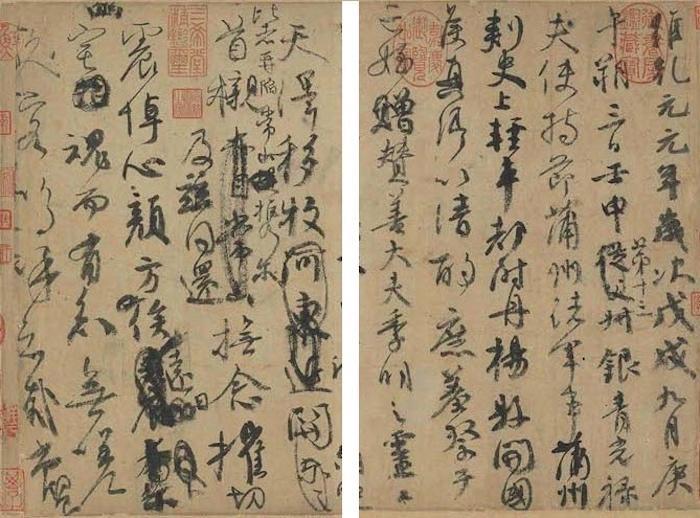 維乾元元年歲次戊戌九月庚
午朔三日壬申從父第十三叔銀青光祿
夫使持節蒲州諸軍事蒲州
刺史上輕車都尉丹楊縣開國
侯真卿以清酌庶羞祭于
亡姪贈贊善大夫季明之靈曰
天澤移牧河東近河關
比者再陷常山携爾
首櫬亦自常山撫念摧切
及茲同還
震悼心顏方俟遠日
宅魂而有知無嗟久
客嗚呼哀哉尚饗